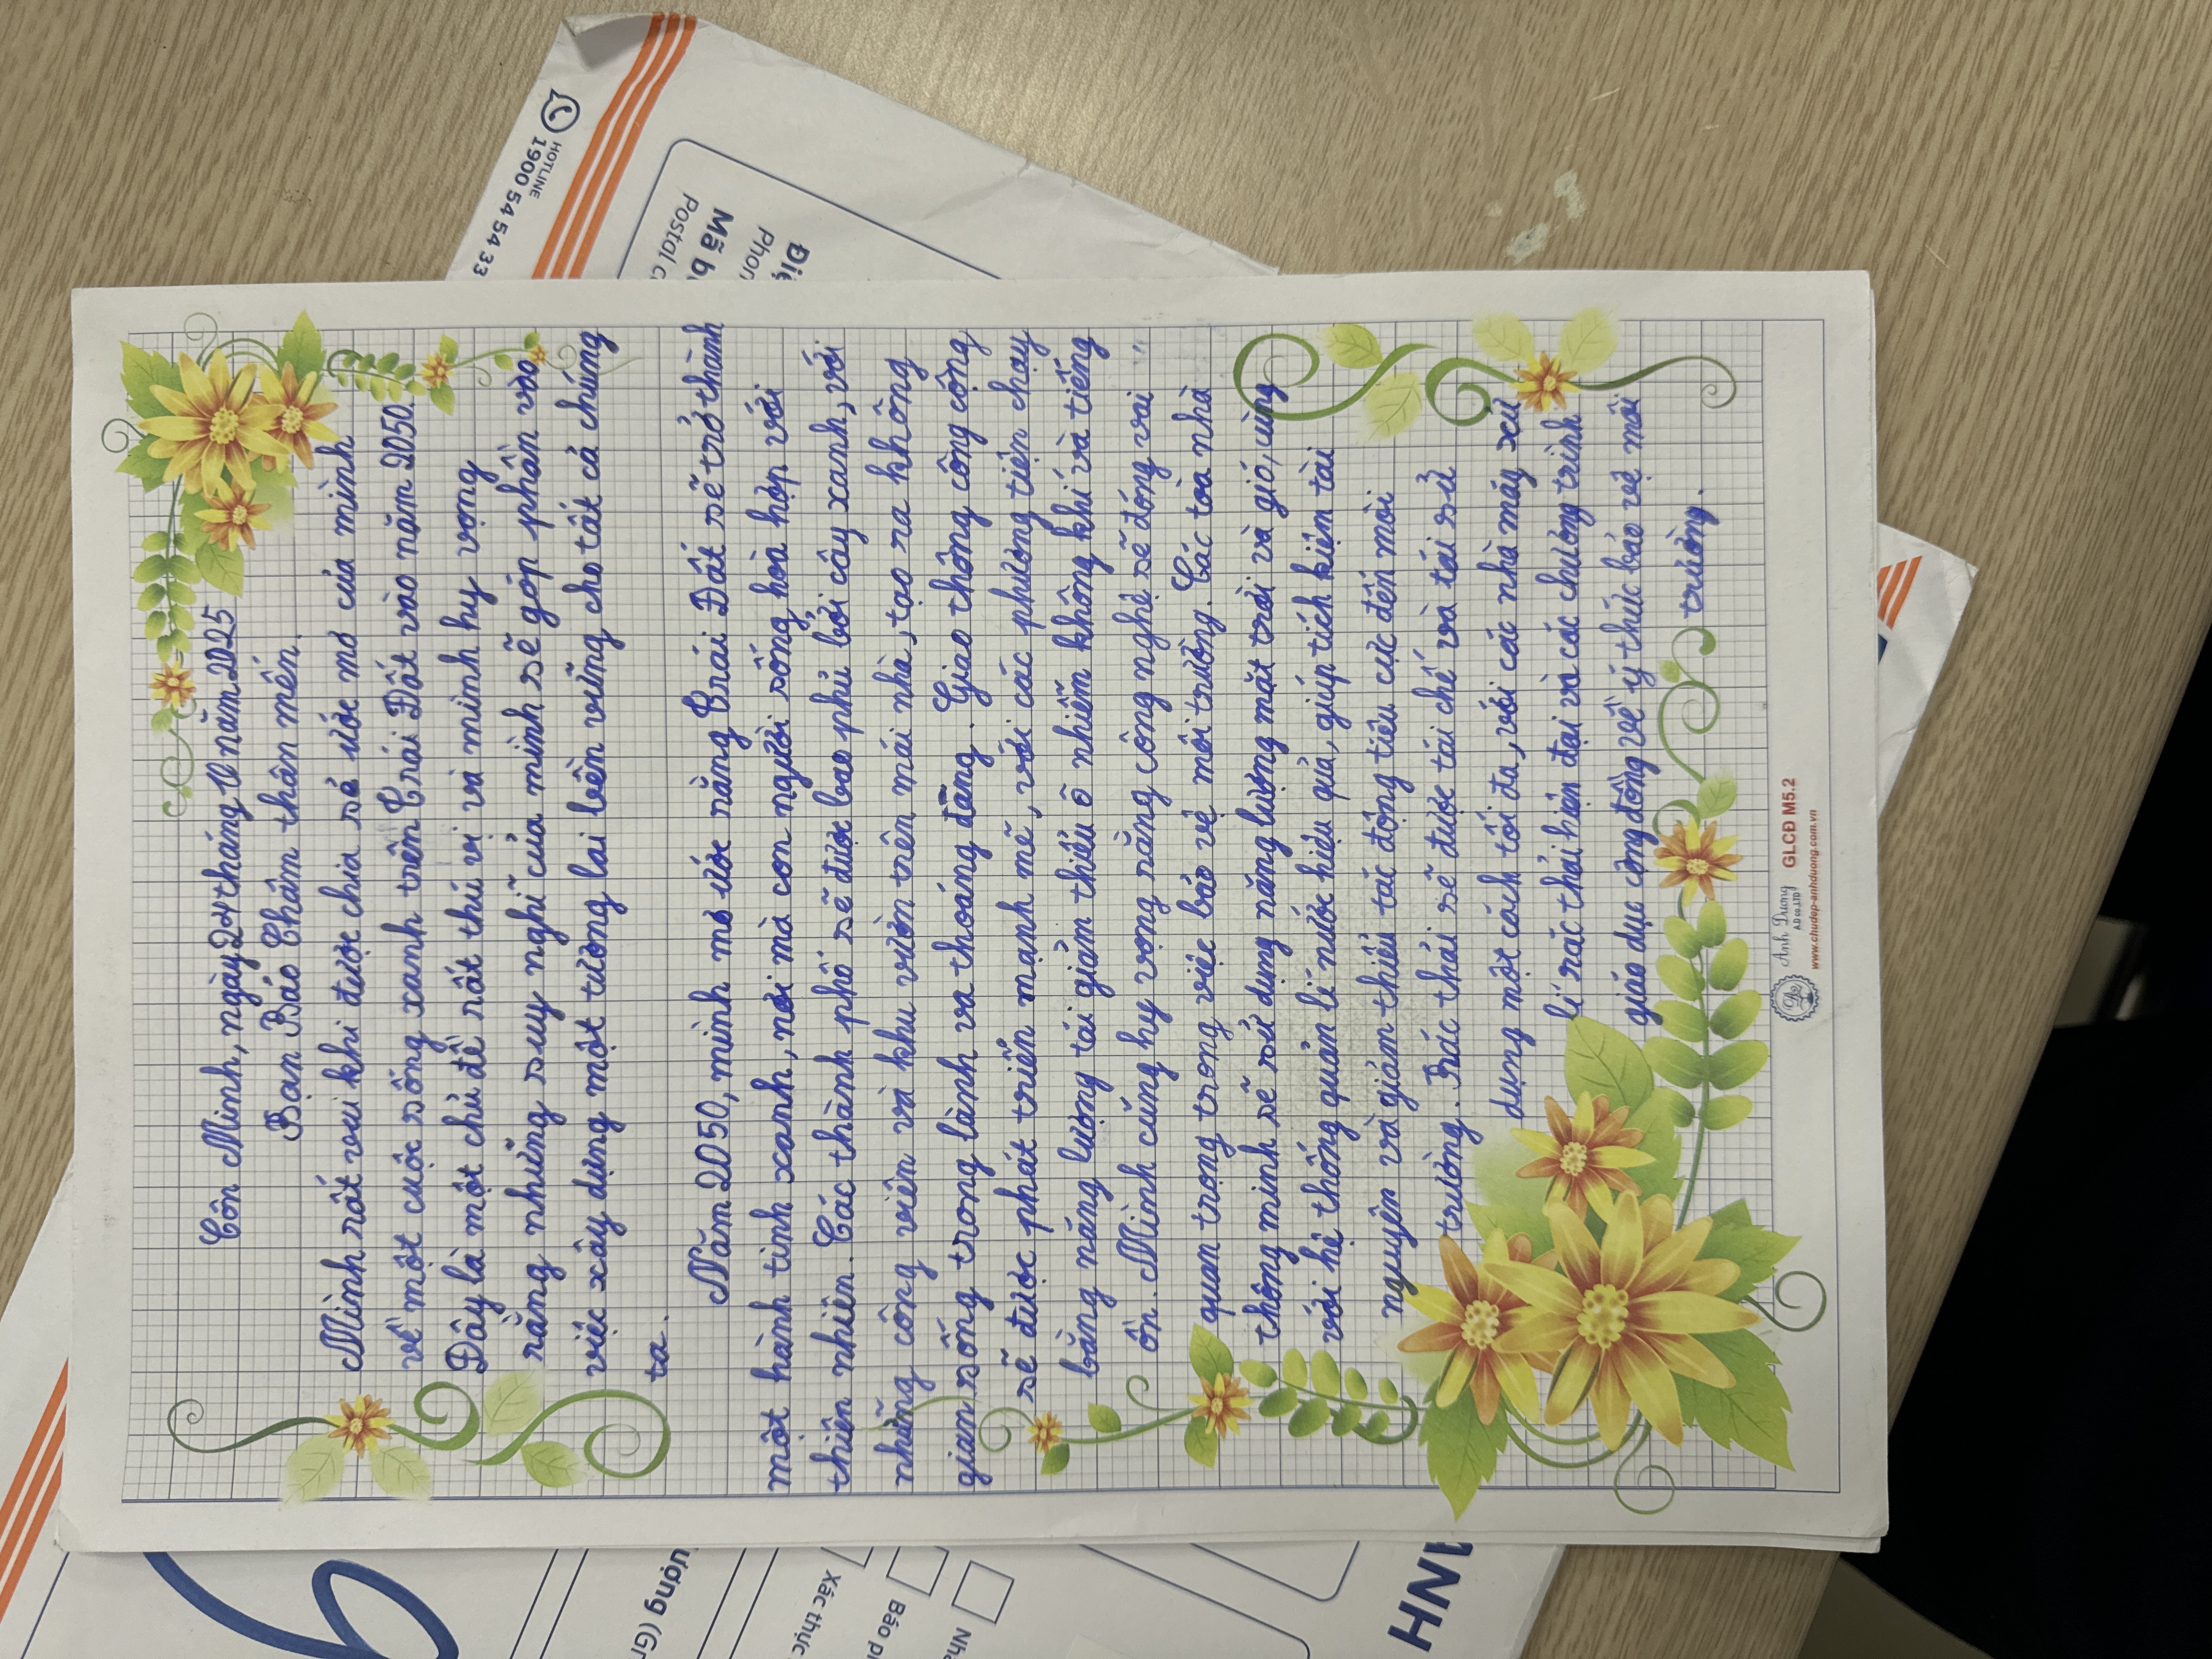 Côn Minh, ngày 24 tháng 10 năm 2025
Bạn Báo Thân thân mến.
Mình rất vui khi được chia sẻ ước mơ của mình
về một cuộc sống xanh trên Trái Đất vào năm 2050.
Đây là một chủ đề rất thú vị và mình hy vọng
rằng những suy nghĩ của mình sẽ góp phần vào
việc xây dựng một tương lai bền vững cho tất cả chúng
ta.
Năm 2050, mình mơ ước rằng Trái Đất sẽ trở thành
một hành tinh xanh, nơi mà con người sống hoà hợp với
thiên nhiên. Các thành phố sẽ được bao phủ bởi cây xanh, với
những công viên và khu vườn trên mái nhà, tạo ra không
gian sống trong lành và thoáng đãng. Giao thông công cộng
sẽ được phát triển mạnh mẽ, với các phương tiện chạy
bằng năng lượng tái giảm thiểu ô nhiễm không khí và tiếng
ồn. Mình cũng hy vọng rằng công nghệ sẽ đóng vai
quan trọng trong việc bảo vệ môi trường. Các toà nhà
thông minh sẽ sử dụng năng lượng mặt trời và gió, cùng
với hệ thống quản lí nước hiệu quả, giúp tích kiệm tài
nguyên và giảm thiểu tác động tiêu cực đến môi
trường. Rác thải sẽ được tái chế và tái sử
dụng một cách tối đa, với các nhà máy xử
lí rác thải hiện đại và các chương trình
giáo dục cộng đồng về ý thức bảo vệ môi
trường.
Ánh Dương
A.D CO.,LTD
GLCĐ M5.2
www.chudep-anhduong.com.vn
HOTLINE
1900 54 54 33
Mã b
Postal c
Điệ
Phon
ượng (Gr
Xác thực
Báo p
Nh
HNH